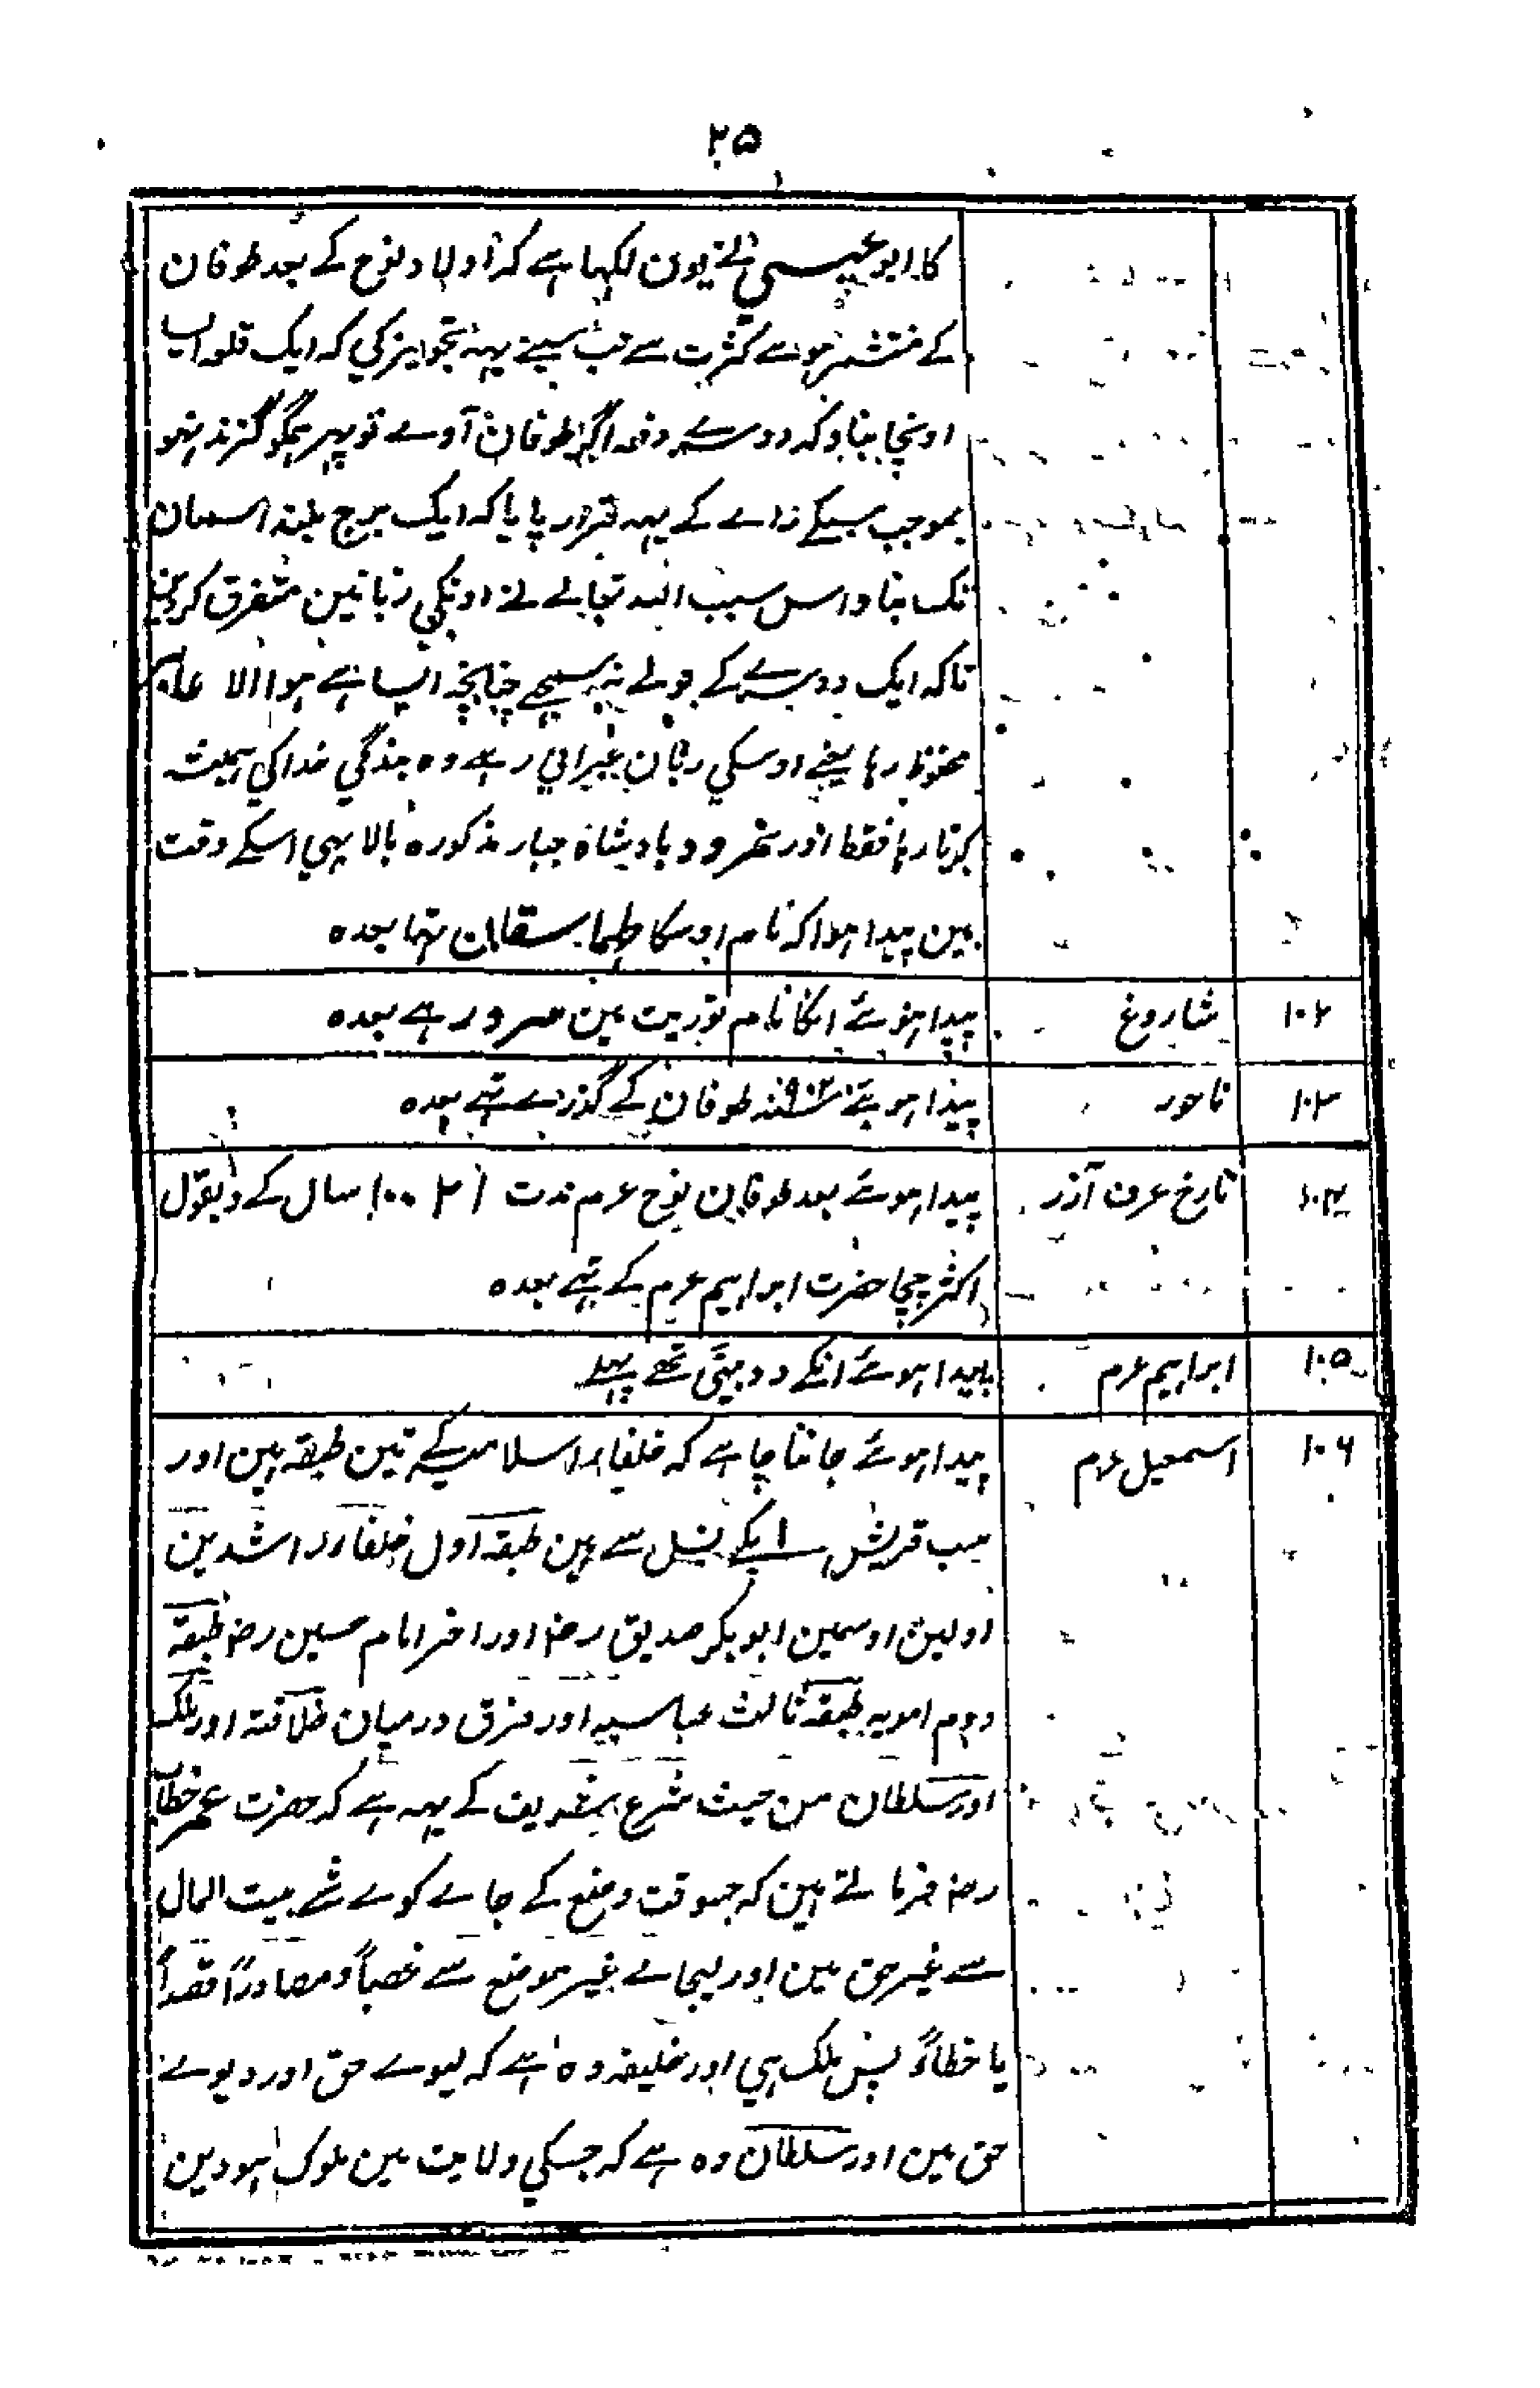 ۲۵
کا ابو عیسی نے یون لکہا ہے کہ اولاد نوح کے بعد طوفان
کے منتشر ہوے کثرت سے تب سبنے یہہ تجویز کی کہ ایک قلعہ ایسا
اونچا بناو کہ دوسرے دفعہ اگر طوفان آوے تو پہر ہمکو گزند نہو
بموجب سبکے راے کے یہہ قرار پایا کہ ایک برج بلند اسمان
تک بناو اس سبب اللہ تعالے نے اونکی زبانین متفرق کردین
تاکہ ایک دوسرے کے بولے نہ سمجے چنانچہ ایسا ہے ہوا الا
محفوظ رہا یعنے اوسکی زبان عبرانی رہے وہ بندگی خدا کی ہمیشہ
کرتا رہا فقط اور نمرود بادشاہ جبار مذکورہ بالا بہی اسکے وقت
مین پیدا ہوا کہ نام اوسکا تہا بعدہ
۱۰۲ شاروغ پیدا ہوئے انکا نام توریت مین سرور ہے بعدہ
۱۰۳ ناحور پیدا ہوئے طوفان کے گذرے تہے بعدہ
۱۰۴ تارخ عرف آذر پیدا ہوئے بعد طوفان نوح عم مدت سال کے و بقول
اکثر چچا حضرت ابراہیم عم کے تہے بعدہ
۱۰۵ ابراہیم عم پیدا ہوئے انکے دو بیٹی تھے پہلے
۱۰۶ اسمعیل عم پیدا ہوئے جاننا چاہے کہ خلفاء اسلامیہ کے تین طبقہ ہین اور
سب قریش ایکے نسل سے ہین طبقہ اول خلفاء راشدین
اولین اوسمین ابو بکر صدیق رض اور اخر امام حسین رض طبقہ
دوم امویہ طبقہ ثالث عباسیہ اور فرق درمیان خلافتہ اور ملک
اور سلطان من حیث شرع شریف کے یہہ ہے کہ حضرت عمر خطاب
رض فرماتے ہین کہ جسوقت وضع کے جاے کوے شے بیت المال
سے غیر حق مین اور لیجاے غیر موضع سے غصباً و مصادرۃً قصداً
یا خطاءً پس ملک ہی اور خلیفہ وہ ہے کہ لیوے حق اور دیوے
حق مین اور سلطان وہ ہے کہ جسکی ولایت مین ملوک ہووین